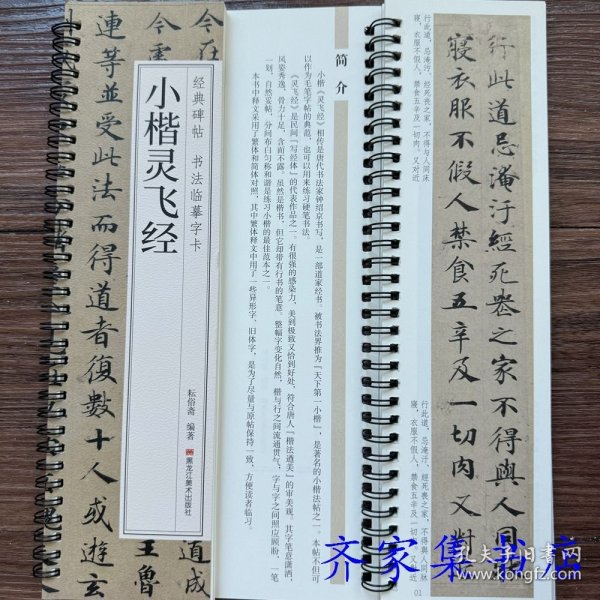 经典碑帖 书法临摹字卡
小楷灵飞经
耘俗斋 编著
黑龙江美术出版社
道成
王魯
連等並受此法而得道者復數十人或遊玄
简介
小楷《灵飞经》相传是唐代书法家钟绍京书写,是一部道家经书。被书法界推为『天下第一小楷』,是著名的小楷法帖之一。本帖不但可
以作为毛笔字帖的典范,也可以用来练习硬笔书法。
《灵飞经》是民间『写经体』的代表作品之一。有很强的感染力,美到极致又恰到好处,符合唐人『楷法遒美』的审美观。其字笔意潇洒,
风姿秀逸,骨力十足,含而不露。虽然是楷书,但它却带有行书的笔意。整幅字变化自然,楷与行之间流通贯气,字与字之间照应顾盼,一笔
一划,自然妥帖,分间布白匀称和谐是练习小楷的最佳范本之一。
本书中释文采用了繁体和简体对照,其中繁体释文中用了一些异形字、旧体字,是为了尽量与原帖保持一致,方便读者临习。
行此道,忌淹污、经死丧之家,不得与人同床
寝,衣服不假人,禁食五辛及一切肉。又对近
行此道,忌淹汙、經死喪之家,不得與人同牀
寢,衣服不假人,禁食五辛及一切肉。又對近
01
行此道忌淹汙經死喪之家不得與人同牀
寢衣服不假人禁食五辛及一切肉又對
齐家集书店
孔夫子旧书网
www.kongfz.com